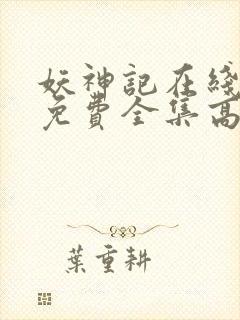 妖神記在綫
免費全集高
葉重耕